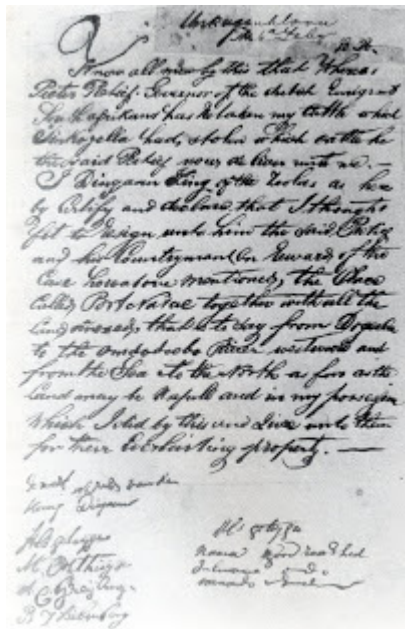 Know all men by this that Whereas
Pieter Retief Governor of the dutch Emigrant
South afrikans has Retaken my Cattle which
Sinkonyella had stolen which cattle he
the said Retief now deliver unto me. —
I Dingaan King of the Zoolas do here
by Certify and declare that I thought
fit to Resign unto him the Said Retief
and his Countrymen On Reward of the
Case hereabove mentioned, the Place
Called Port Natal together with all the
Land annexed, that is to say from Dogeela
to the River westward and
from the Sea to the North as far as the
Land may be Usefull and in my possession
Which I did by this and Give unto them
for their Everlasting property. —
King Dingaan
M Oosthuyse
A C Greyling
B J Liebenberg